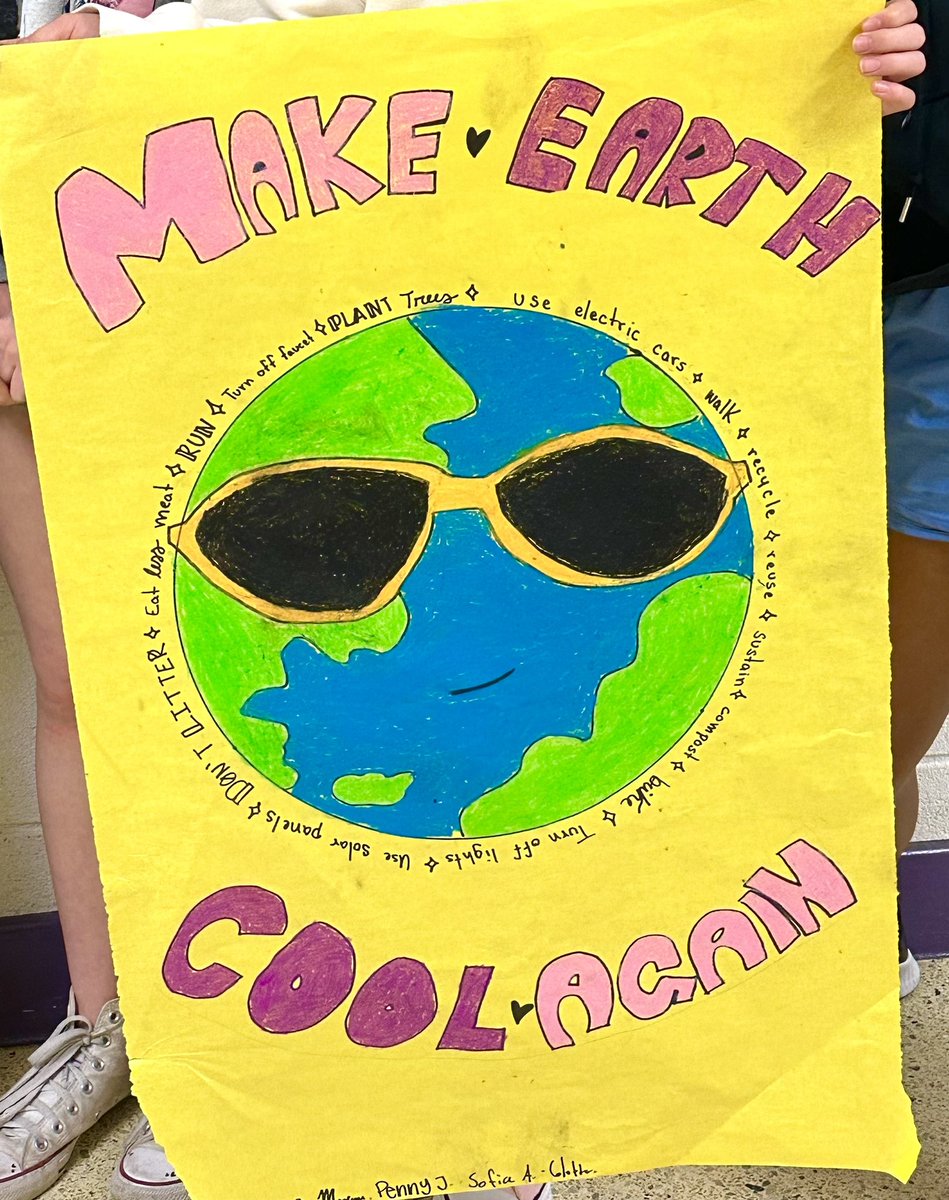 MAKE EARTH
PLANT Trees use electric cars walk recycle reuse sustain compost bike Turn off lights Use solar panels DON'T LITTER Eat less meat RUN Turn off faucet
COOL AGAIN
Penny J. Sofia A.